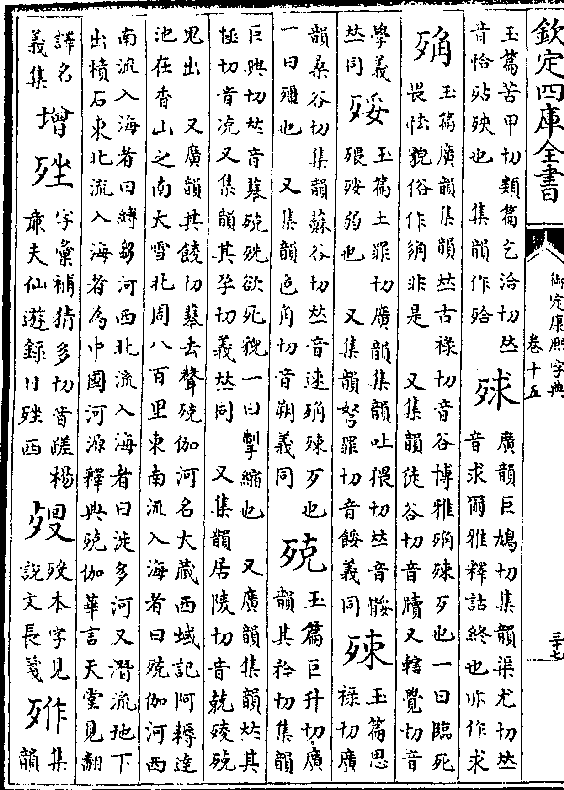 欽定四庫全書
御定康熙字典
卷十五
三十七
玉篇苦甲切類篇乞洽切𠀤
音恰 殃也 集韻作殆
殏
廣韻巨鳩切集韻渠尤切𠀤
音求爾雅釋詁終也亦作求
殌
玉篇廣韻集韻𠀤古祿切音谷博雅殌殐歹也一曰臨死
畏怯貌俗作 非是 又集韻徒谷切音牘又轄覺切音
學義
𠀤同
㱣
玉篇土罪切廣韻集韻吐猥切𠀤音骽
㱬㱣弱也 又集韻弩罪切音餒義同
殐
玉篇思
祿切廣
韻桑谷切集韻蘇谷切𠀤音速殌殐歹也
一曰殟也 又集韻色角切音朔義同
殑
玉篇巨升切廣
韻其矜切集韻
巨興切𠀤音 殑殑欲死貌一曰掣縮也 又廣韻集韻𠀤其
極切音 又集韻其孕切義𠀤同 又集韻居陵切音兢殑殑
鬼出 又廣韻其餕切 去聲殑伽河名大藏西域記阿耨達
池在香山之南大雪北周八百里東南流入海者曰殑伽河西
南流入海者曰縛芻河西北流入海者曰徙多河又潛流地下
出積石東北流入海者為中國河源釋典殑伽華言天堂見翻
譯名
義集
增
字彙補猜多切音蹉楊
廉夫仙遊錄日 西
歿本字見
說文長箋
集
韻